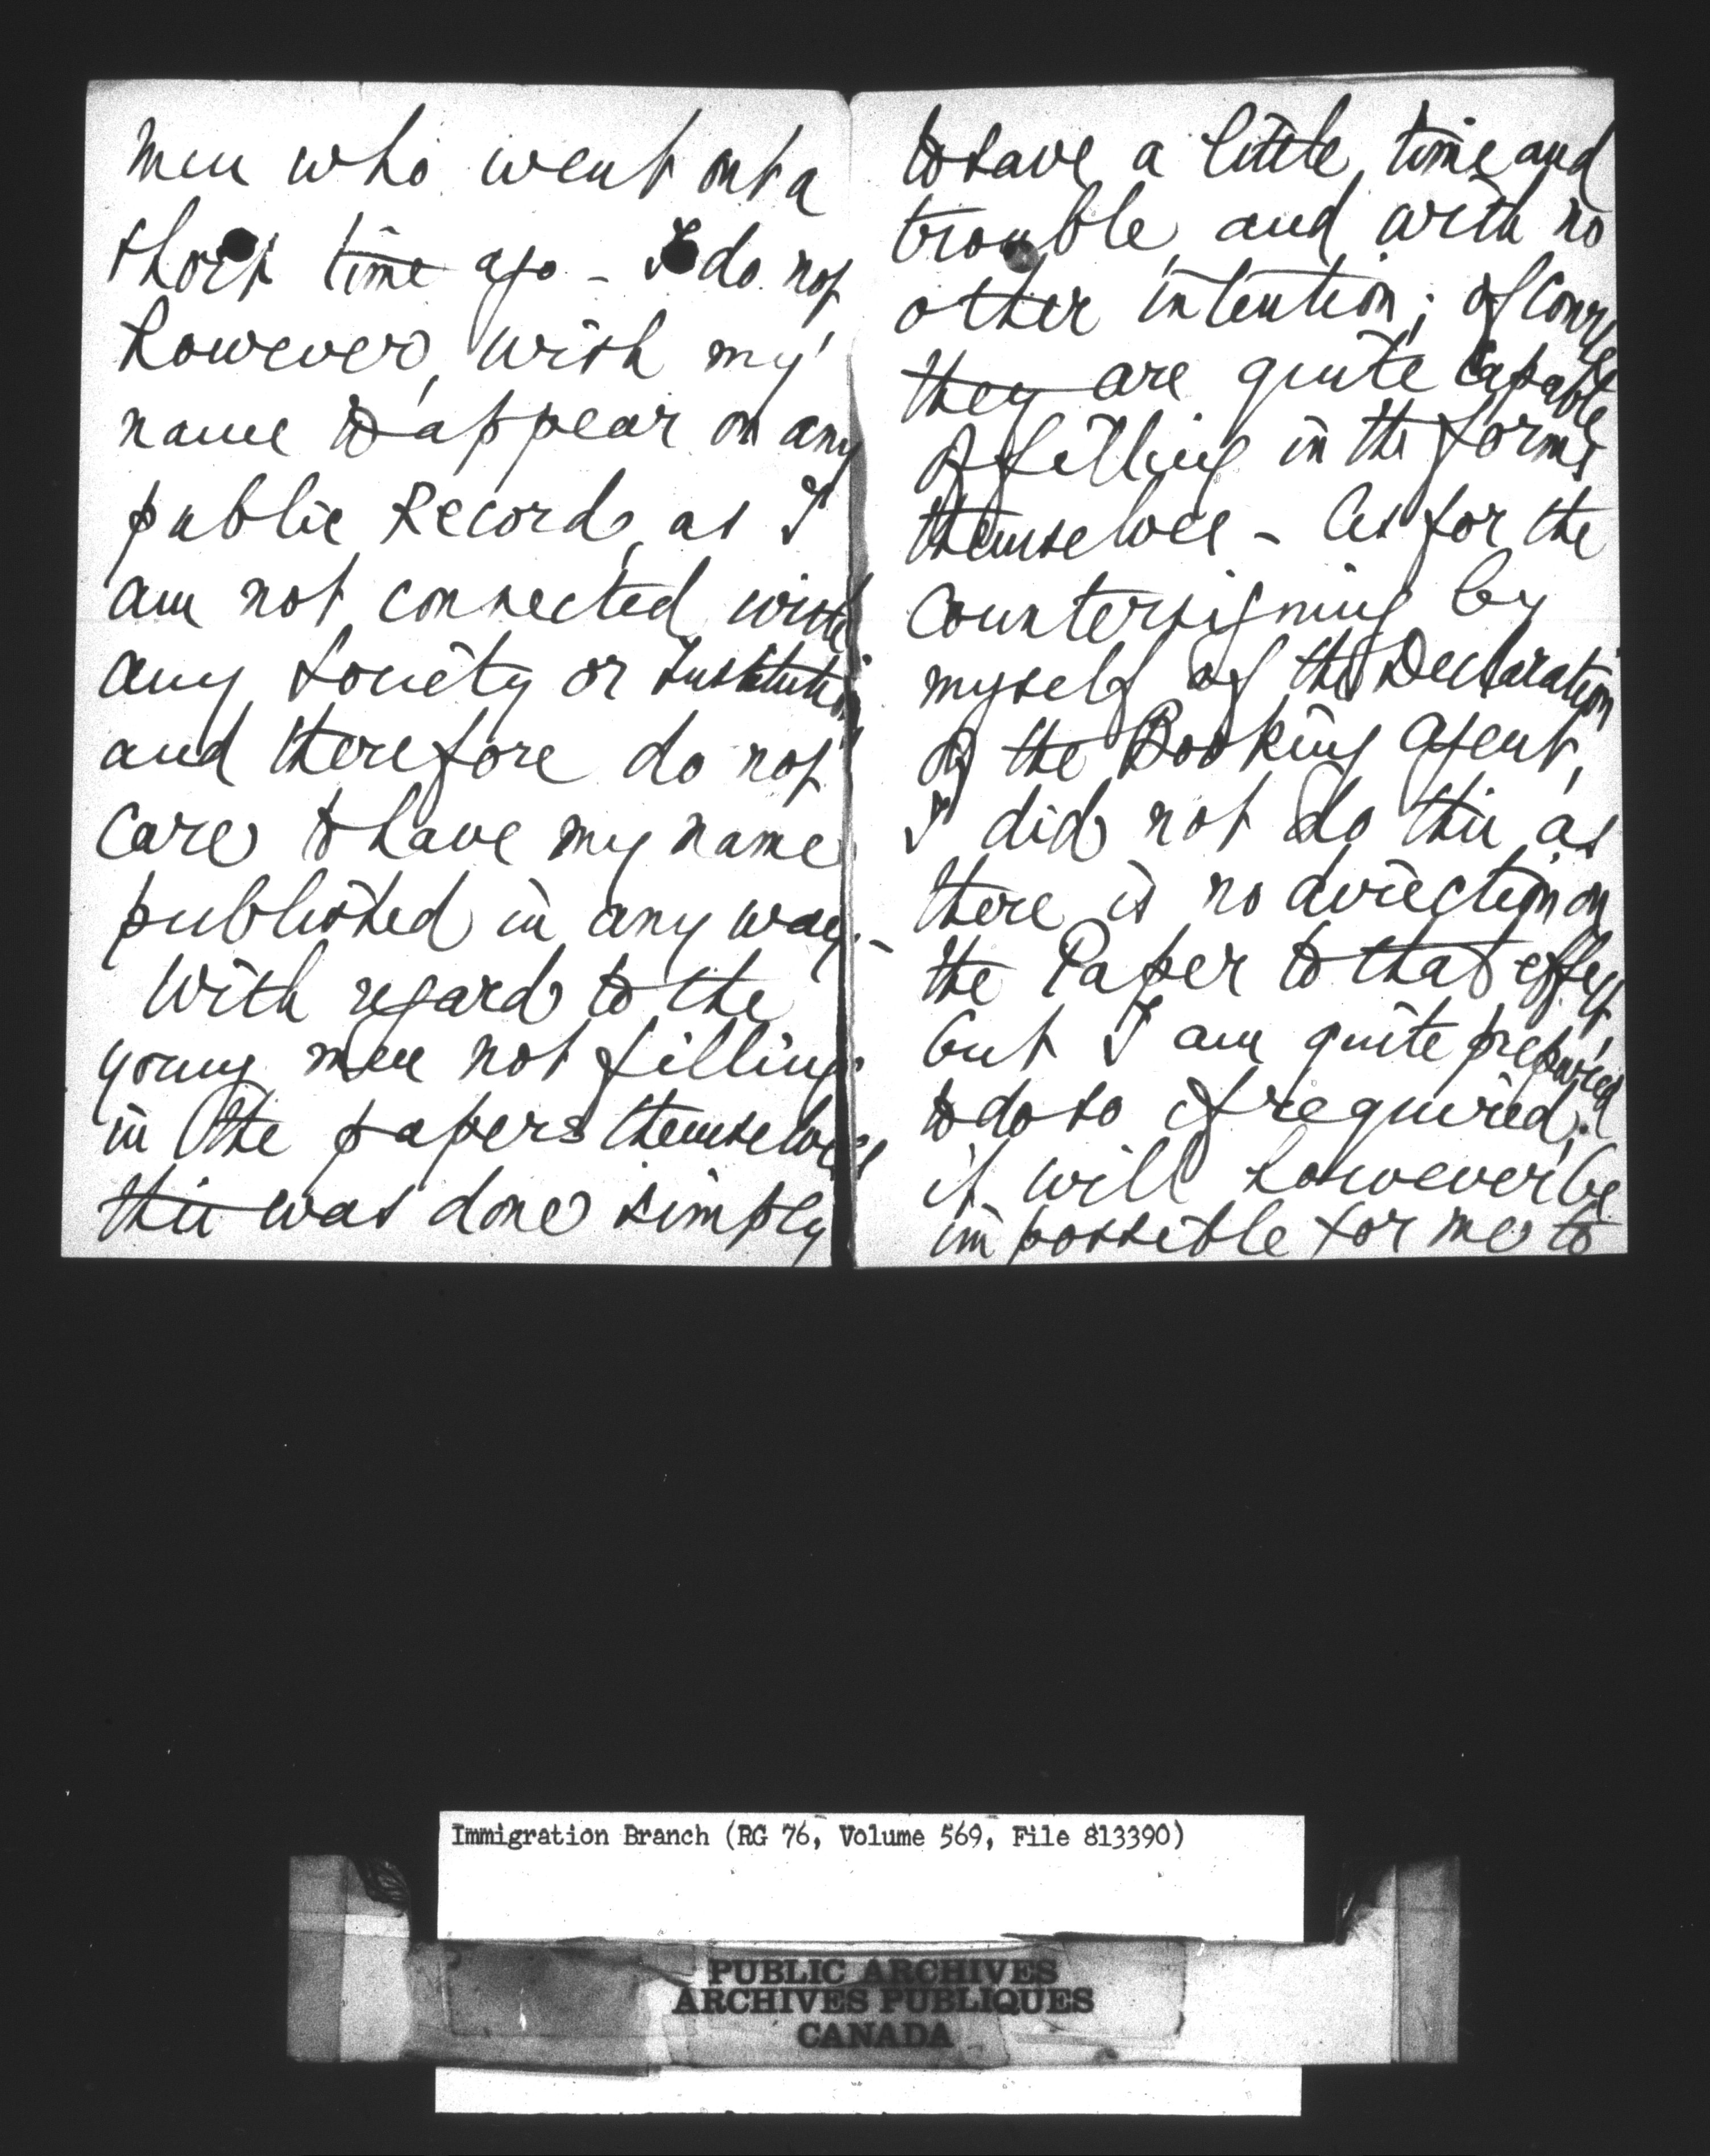 men who went out a
short time ago - I do not
however, wish my
name to appear on any
public Record, as I
am not connected with
any Society or Institution
and therefore do not
care to have my name
published in any way. -
With regard to the
young men not filling
in the papers themselves
this was done simply
to save a little time and
trouble and with no
other intention; of course
they are quite capable
of filling in the forms
themselves - As for the
countersigning by
myself of the Declaration
of the Booking Agent,
I did not do this as
there is no direction on
the Paper to that effect
but I am quite prepared
to do so if required;
it will however be
impossible for me to
Immigration Branch (RG 76, Volume 569, File 813390)
PUBLIC ARCHIVES
ARCHIVES PUBLIQUES
CANADA